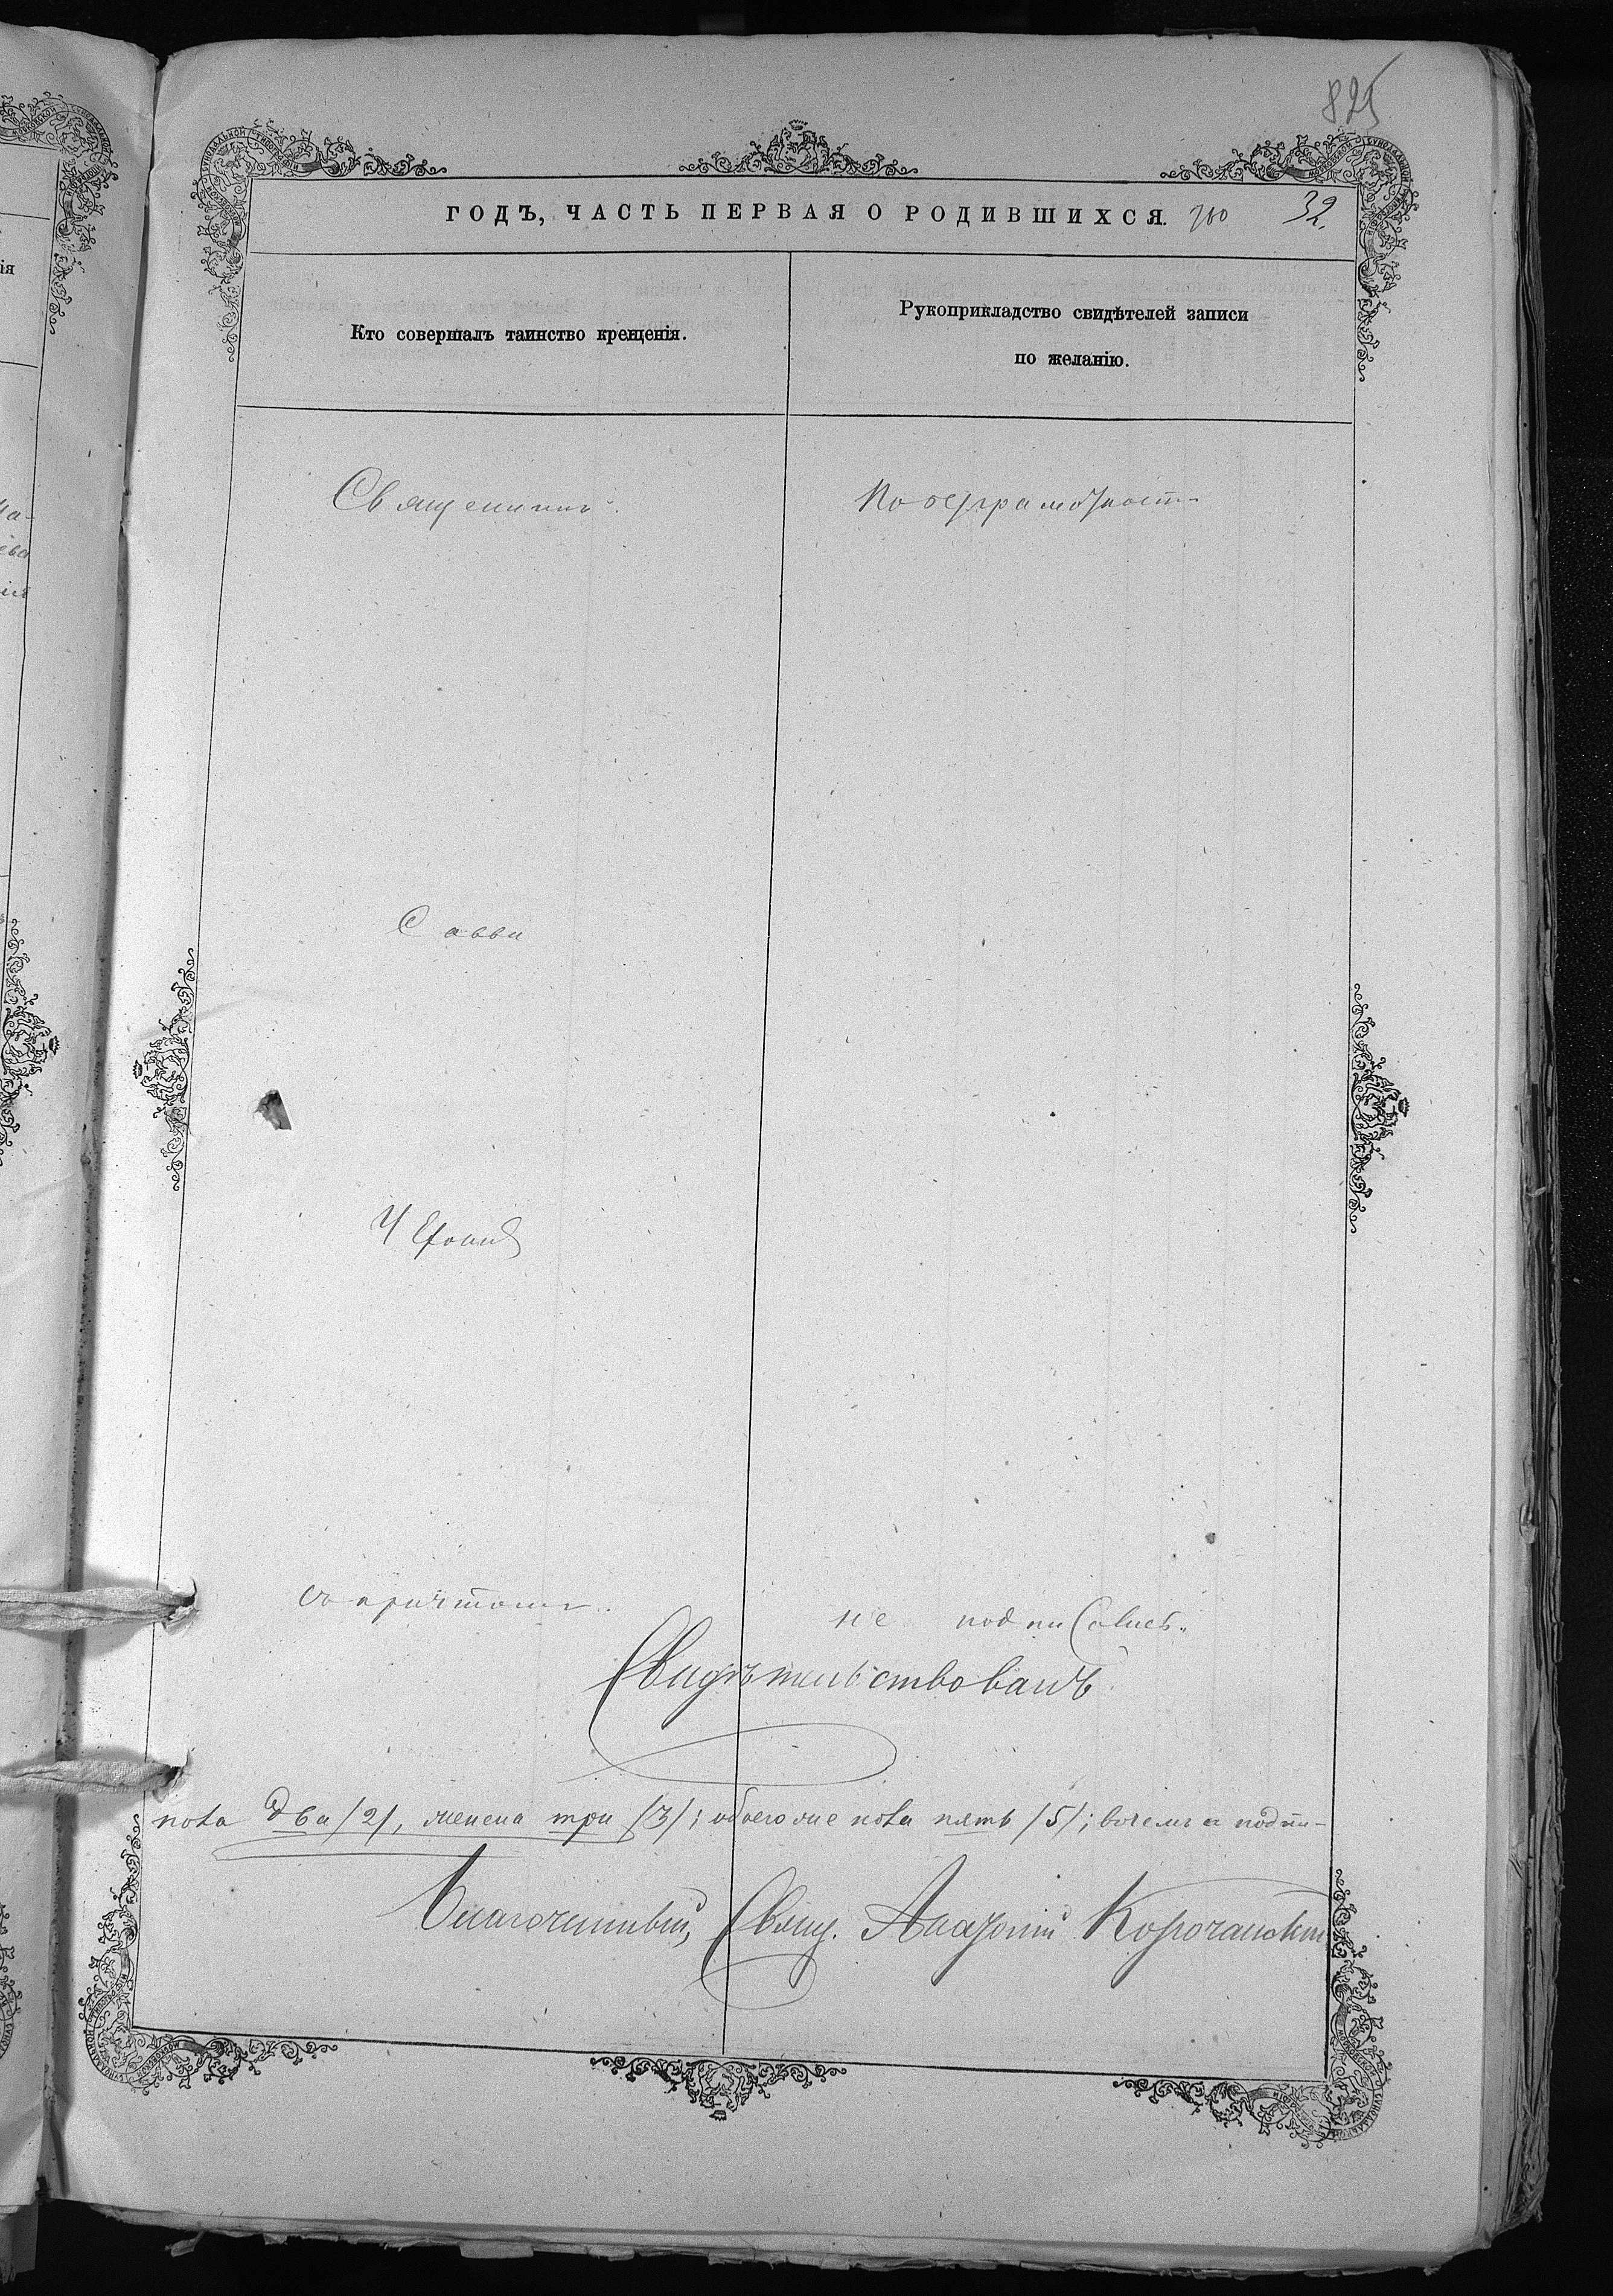 825
ГОДЪ, ЧАСТЬ ПЕРВАЯ О РОДИВШИХСЯ. 780 32.
Кто совершалъ таинство крещенія.
Рукоприкладство свидѣтелей записи
по желанію.
Священникъ
По безграмотности
Савва
съ причтомъ.
не подписались.
Свидѣтельствовалъ
пола два /2/, женска три /3/; обоего же пола пять /5/; въ чемъ и подпи-
Благочинный, Свящ. Анатолій Корочанскій